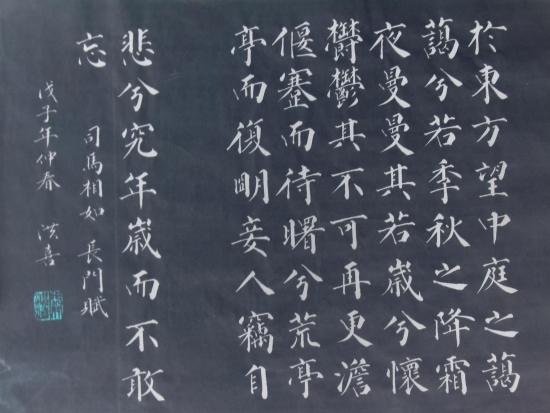 於東方望中庭之藹
藹兮若季秋之降霜
夜曼曼其若歲兮懷
鬱鬱其不可再更澹
偃蹇而待曙兮荒亭
亭而復明妾人竊自
悲兮究年歲而不敢
忘
司馬相如 長門賦
戊子年仲春 洪喜